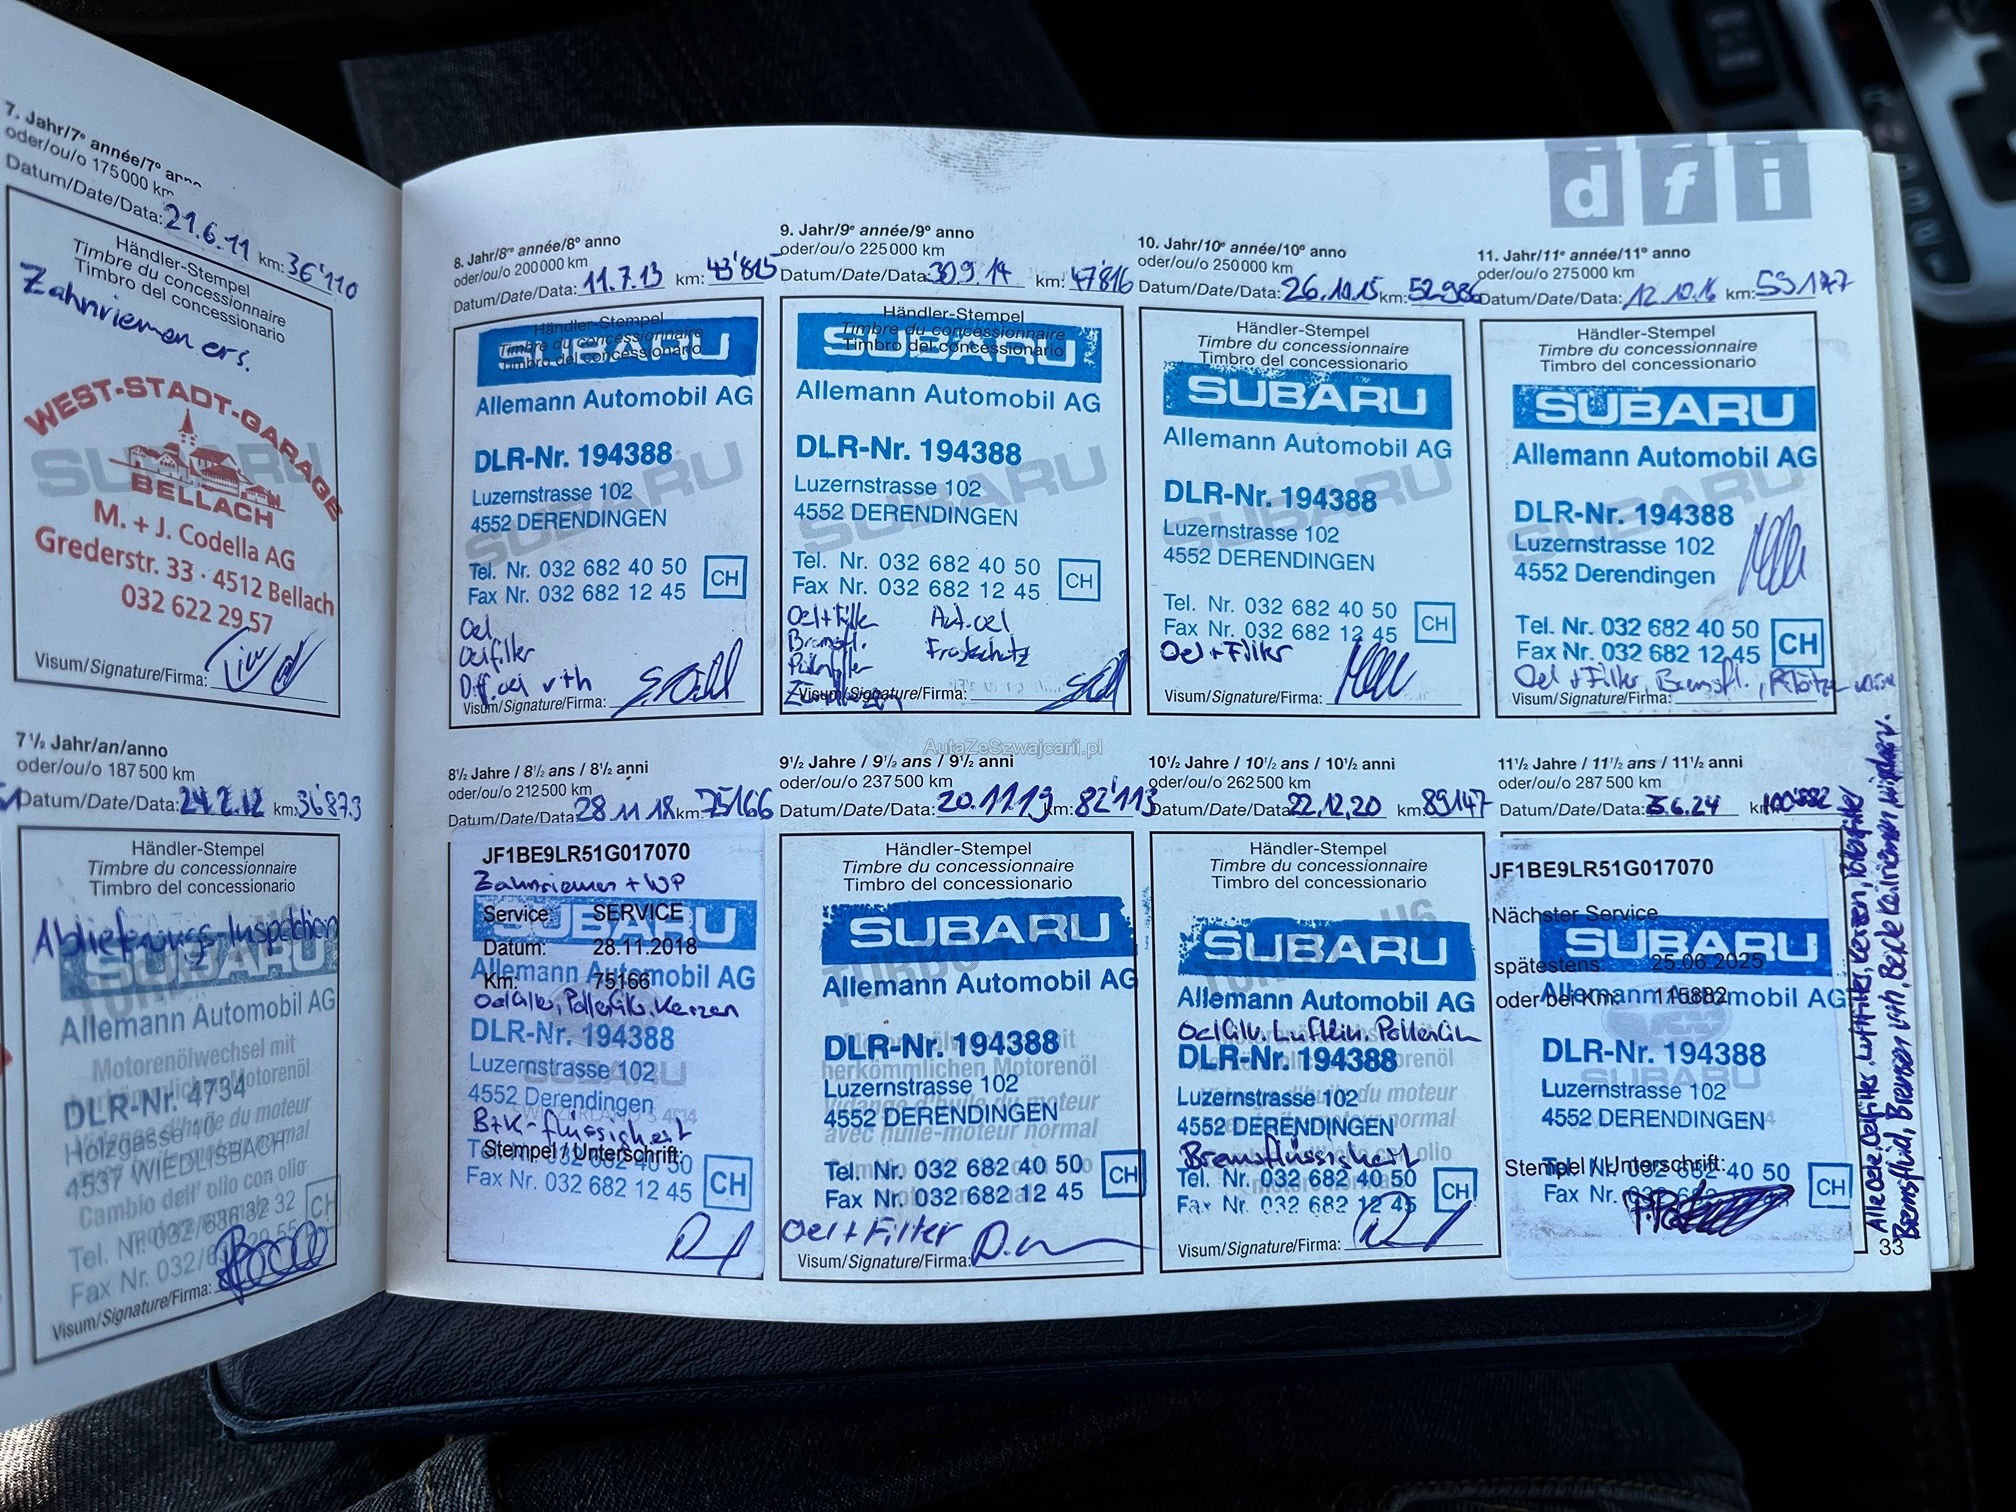 7. Jahr/7e année/7º anno
oder/ou/o 175000 km
Datum/Date/Data: 21.6.11 km: 36'110
Händler-Stempel
Timbre du concessionnaire
Timbro del concessionario
Zahnriemen ers.
SUBARU
WEST-STADT-GARAGE
BELLACH
M. + J. Codella AG
Grederstr. 33 · 4512 Bellach
032 622 29 57
Visum/Signature/Firma:
7½ Jahr/an/anno
oder/ou/o 187500 km
Datum/Date/Data: 24.2.12 km: 36'873
Händler-Stempel
Timbre du concessionnaire
Timbro del concessionario
Ablieferungs-Inspection
SUBARU
Allemann Automobil AG
Motorenölwechsel mit
herkömmlichem Motorenöl
DLR-Nr. 4734
Vidange d'huile du moteur
Holzgasse 10
4537 WIEDLISBACH
Cambio dell' olio con olio
Tel. Nr. 032/636 32 32
CH
Fax Nr. 032/
Visum/Signature/Firma:
8. Jahr/8re année/8º anno
oder/ou/o 200000 km
Datum/Date/Data: 11.7.13 km: 43'815
Händler-Stempel
Timbre du concessionnaire
Timbro del concessionario
SUBARU
Allemann Automobil AG
DLR-Nr. 194388
SUBARU
Luzernstrasse 102
4552 DERENDINGEN
Tel. Nr. 032 682 40 50
Fax Nr. 032 682 12 45
CH
Oel
Oelfilter
Diff.oel v+h
Visum/Signature/Firma:
9. Jahr/9e année/9º anno
oder/ou/o 225000 km
Datum/Date/Data: 30.9.14 km: 47'816
Händler-Stempel
Timbre du concessionnaire
Timbro del concessionario
SUBARU
Allemann Automobil AG
DLR-Nr. 194388
SUBARU
Luzernstrasse 102
4552 DERENDINGEN
Tel. Nr. 032 682 40 50
Fax Nr. 032 682 12 45
CH
Oel+Filter Aut.oel
Bremsfl. Frostschutz
Visum/Signature/Firma:
10. Jahr/10e année/10º anno
oder/ou/o 250000 km
Datum/Date/Data: 26.10.15 km: 52'986
Händler-Stempel
Timbre du concessionnaire
Timbro del concessionario
SUBARU
Allemann Automobil AG
DLR-Nr. 194388
SUBARU
Luzernstrasse 102
4552 DERENDINGEN
Tel. Nr. 032 682 40 50
Fax Nr. 032 682 12 45
CH
Oel + Filter
Visum/Signature/Firma:
dfi
11. Jahr/11e année/11º anno
oder/ou/o 275000 km
Datum/Date/Data: 12.10.16 km: 59'177
Händler-Stempel
Timbre du concessionnaire
Timbro del concessionario
SUBARU
Allemann Automobil AG
DLR-Nr. 194388
SUBARU
Luzernstrasse 102
4552 Derendingen
Tel. Nr. 032 682 40 50
Fax Nr. 032 682 12 45
CH
Oel + Filter, Bremsfl.,
Visum/Signature/Firma:
AutaZeSzwajcarii.pl
8½ Jahre / 8½ ans / 8½ anni
oder/ou/o 212500 km
Datum/Date/Data: 28.11.18 km: 75166
JF1BE9LR51G017070
Zahnriemen + WP
Service: SERVICE
SUBARU
Datum: 28.11.2018
Allemann Automobil AG
Km: 75166
Kerzen
DLR-Nr. 194388
Luzernstrasse 102
4552 Derendingen
Stempel / Unterschrift:
Tel. Nr. 032 682 40 50
Fax Nr. 032 682 12 45
CH
9½ Jahre / 9½ ans / 9½ anni
oder/ou/o 237500 km
Datum/Date/Data: 20.11.19 km: 82'113
Händler-Stempel
Timbre du concessionnaire
Timbro del concessionario
SUBARU
Allemann Automobil AG
DLR-Nr. 194388
herkömmlichen Motorenöl
Luzernstrasse 102
4552 DERENDINGEN
avec huile-moteur normal
Tel. Nr. 032 682 40 50
Fax Nr. 032 682 12 45
CH
Oel + Filter
Visum/Signature/Firma:
10½ Jahre / 10½ ans / 10½ anni
oder/ou/o 262500 km
Datum/Date/Data: 22.12.20 km: 89147
Händler-Stempel
Timbre du concessionnaire
Timbro del concessionario
H6
SUBARU
Allemann Automobil AG
DLR-Nr. 194388
Luzernstrasse 102
4552 DERENDINGEN
Bremsflüssigkeit
Tel. Nr. 032 682 40 50
Fax Nr. 032 682 12 45
CH
Visum/Signature/Firma:
11½ Jahre / 11½ ans / 11½ anni
oder/ou/o 287500 km
Datum/Date/Data: 25.6.24 km: 100'882
JF1BE9LR51G017070
Nächster Service
SUBARU
spätestens: 25.06.2025
Allemann Automobil AG
oder bei Km: 115882
DLR-Nr. 194388
SUBARU
Luzernstrasse 102
4552 DERENDINGEN
Stempel / Unterschrift:
Tel. Nr. 032 682 40 50
Fax Nr.
CH
Alle Oele, Oelfilter, Luftfilter, Kerzen, Pollenfilter
Bremsfluid, Bremsen v+h, Keilriemen
33